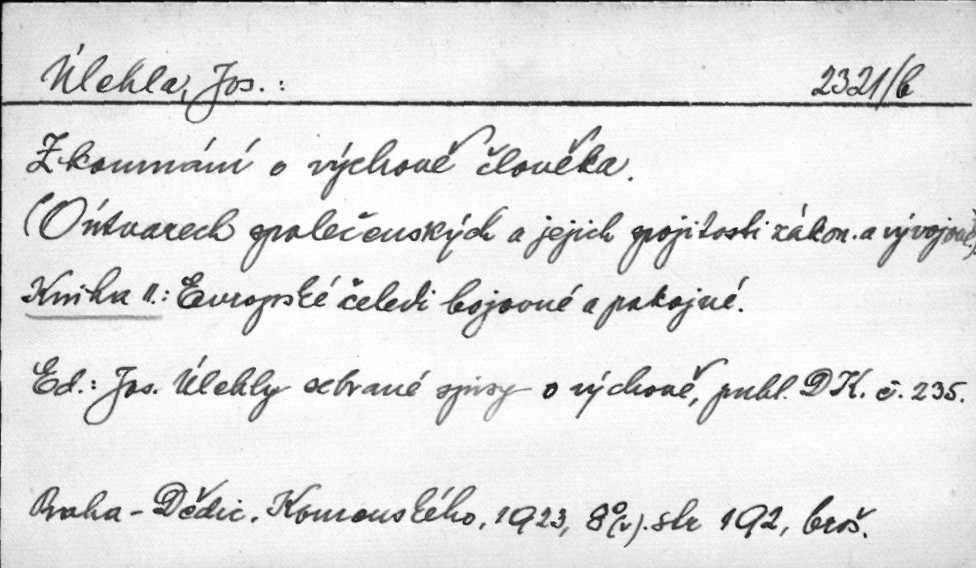 Úlehla, Jos.: 2321/b
Zkoumání o výchově člověka.
(O útvarech společenských a jejich spojitosti zákon. a vývojové).
Kniha II.: Evropské čeledi bojovné a pokojné.
Ed.: Jos. Úlehly sebrané spisy o výchově, publ. DK. č. 235.
Praha - Dědic. Komenského, 1923, 8°(v). str 192, brož.